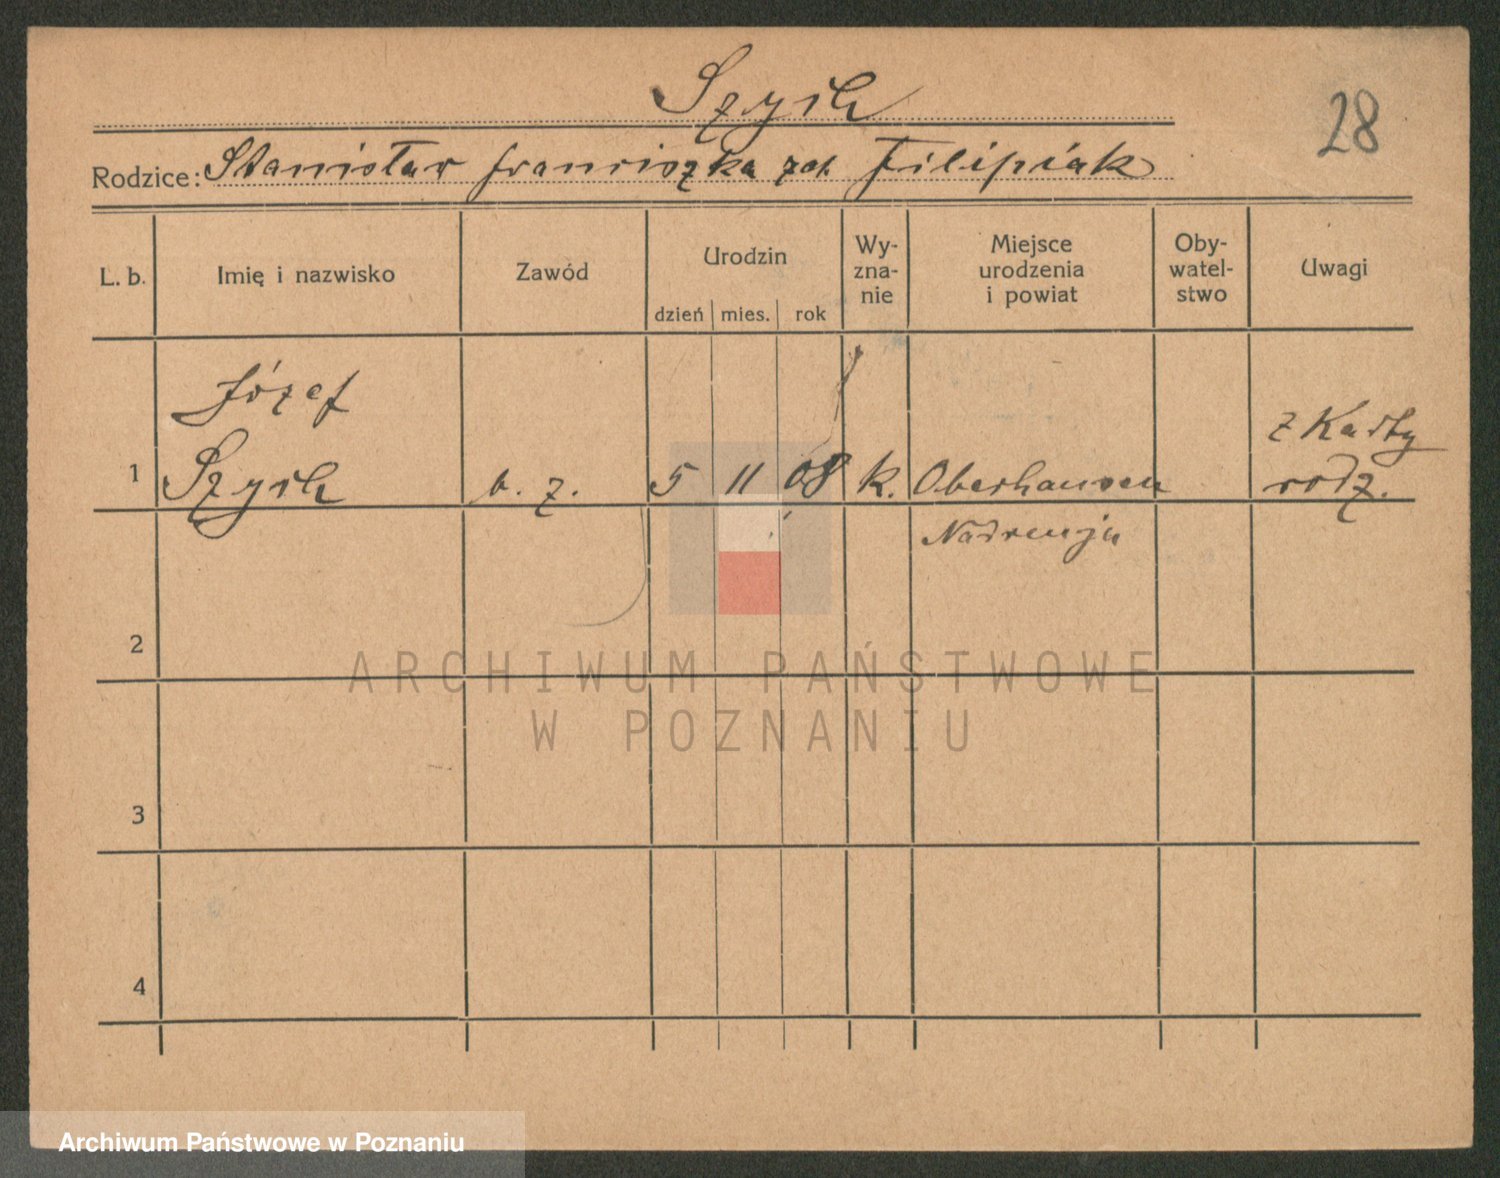 Szych
28
Rodzice: Stanisław Franciszka zd. Filipiak
L. b.
Imię i nazwisko
Zawód
Urodzin
dzień mies. rok
Wy-
zna-
nie
Miejsce
urodzenia
i powiat
Oby-
watel-
stwo
Uwagi
Józef
z Karty
1 Szych b. z. 5 11 08 k. Oberhausen rodz.
Nadrenja
2
3
4
ARCHIWUM PAŃSTWOWE
W POZNANIU
Archiwum Państwowe w Poznaniu